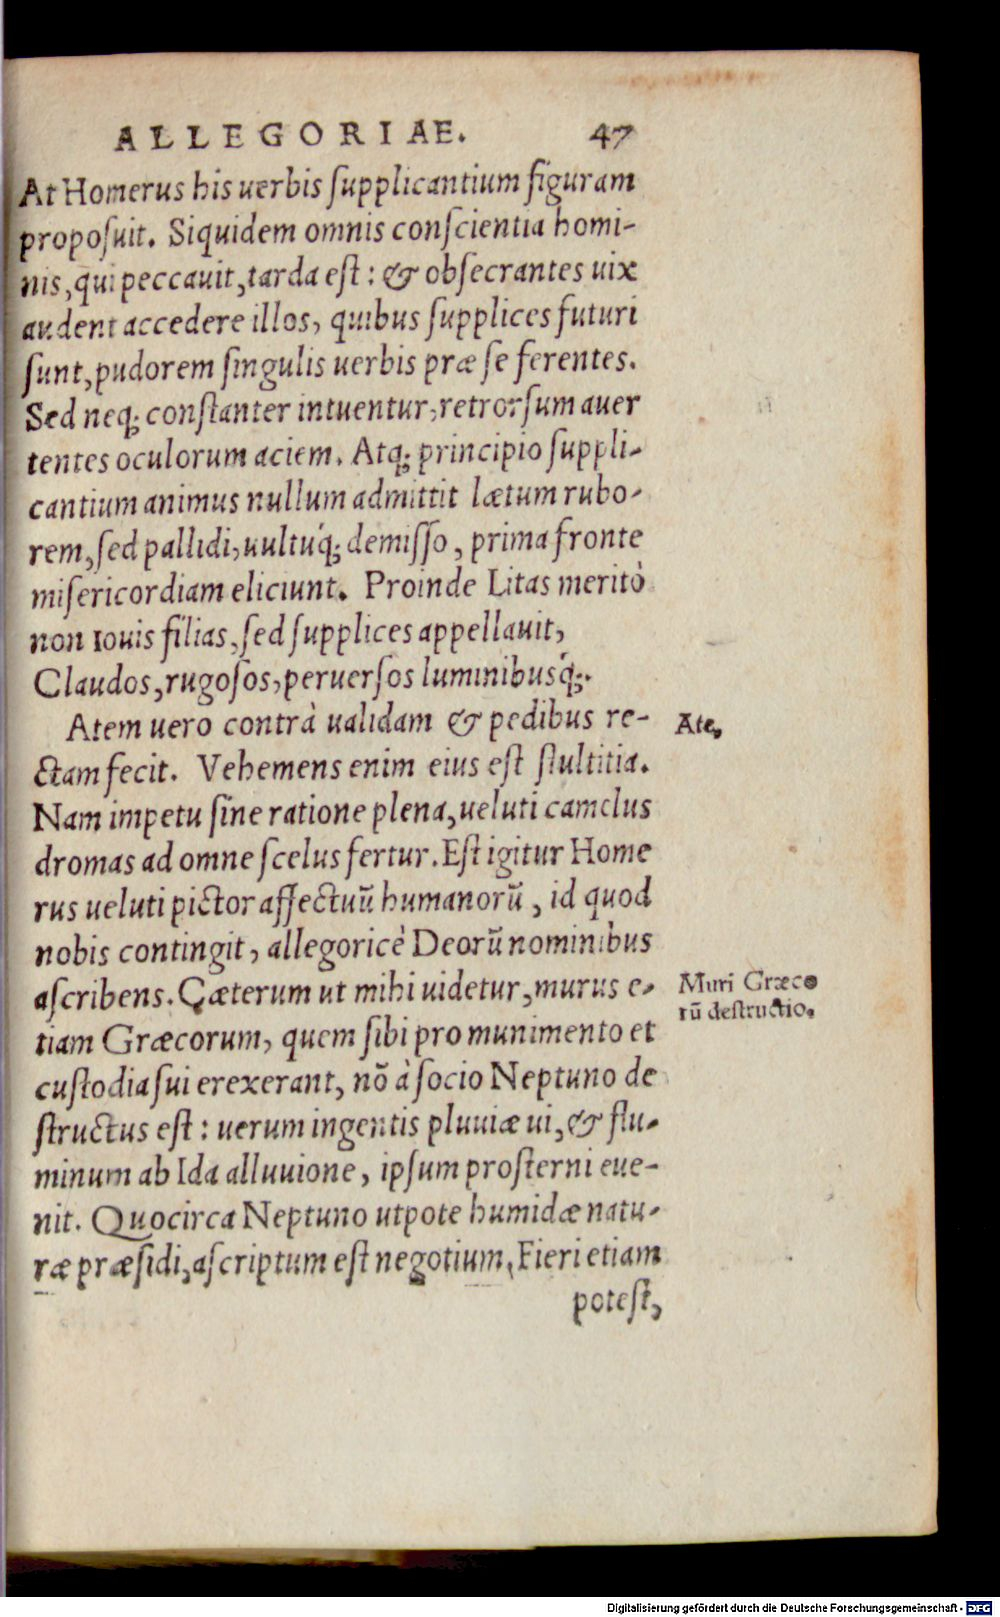 ALLEGORIAE. 47
At Homerus his uerbis ſupplicantium figuram
propoſuit. Siquidem omnis conſcientia homi-
nis, qui peccauit, tarda eſt: & obſecrantes uix
audent accedere illos, quibus ſupplices futuri
ſunt, pudorem ſingulis uerbis præ ſe ferentes.
Sed neq; conſtanter intuentur, retrorſum auer
tentes oculorum aciem. Atq; principio ſuppli-
cantium animus nullum admittit lætum rubo-
rem, ſed pallidi, uultuq́; demiſſo, prima fronte
miſericordiam eliciunt. Proinde Litas meritò
non Iouis filias, ſed ſupplices appellauit,
Claudos, rugoſos, peruerſos luminibusq́;.
Atem uero contrà ualidam & pedibus re-
ctam fecit. Vehemens enim eius eſt ſtultitia.
Nam impetu ſine ratione plena, ueluti camelus
dromas ad omne ſcelus fertur. Eſt igitur Home
rus ueluti pictor affectuũ humanorũ, id quod
nobis contingit, allegoricè Deorũ nominibus
aſcribens. Cæterum ut mihi uidetur, murus e-
tiam Græcorum, quem ſibi pro munimento et
cuſtodia ſui erexerant, nõ à ſocio Neptuno de
ſtructus eſt: uerum ingentis pluuiæ ui, & flu-
minum ab Ida alluuione, ipſum proſterni eue-
nit. Quocirca Neptuno utpote humidæ natu-
ræ præſidi, aſcriptum eſt negotium. Fieri etiam
poteſt,
Ate,
Muri Græco
rũ deſtructio.
Digitalisierung gefördert durch die Deutsche Forschungsgemeinschaft - DFG